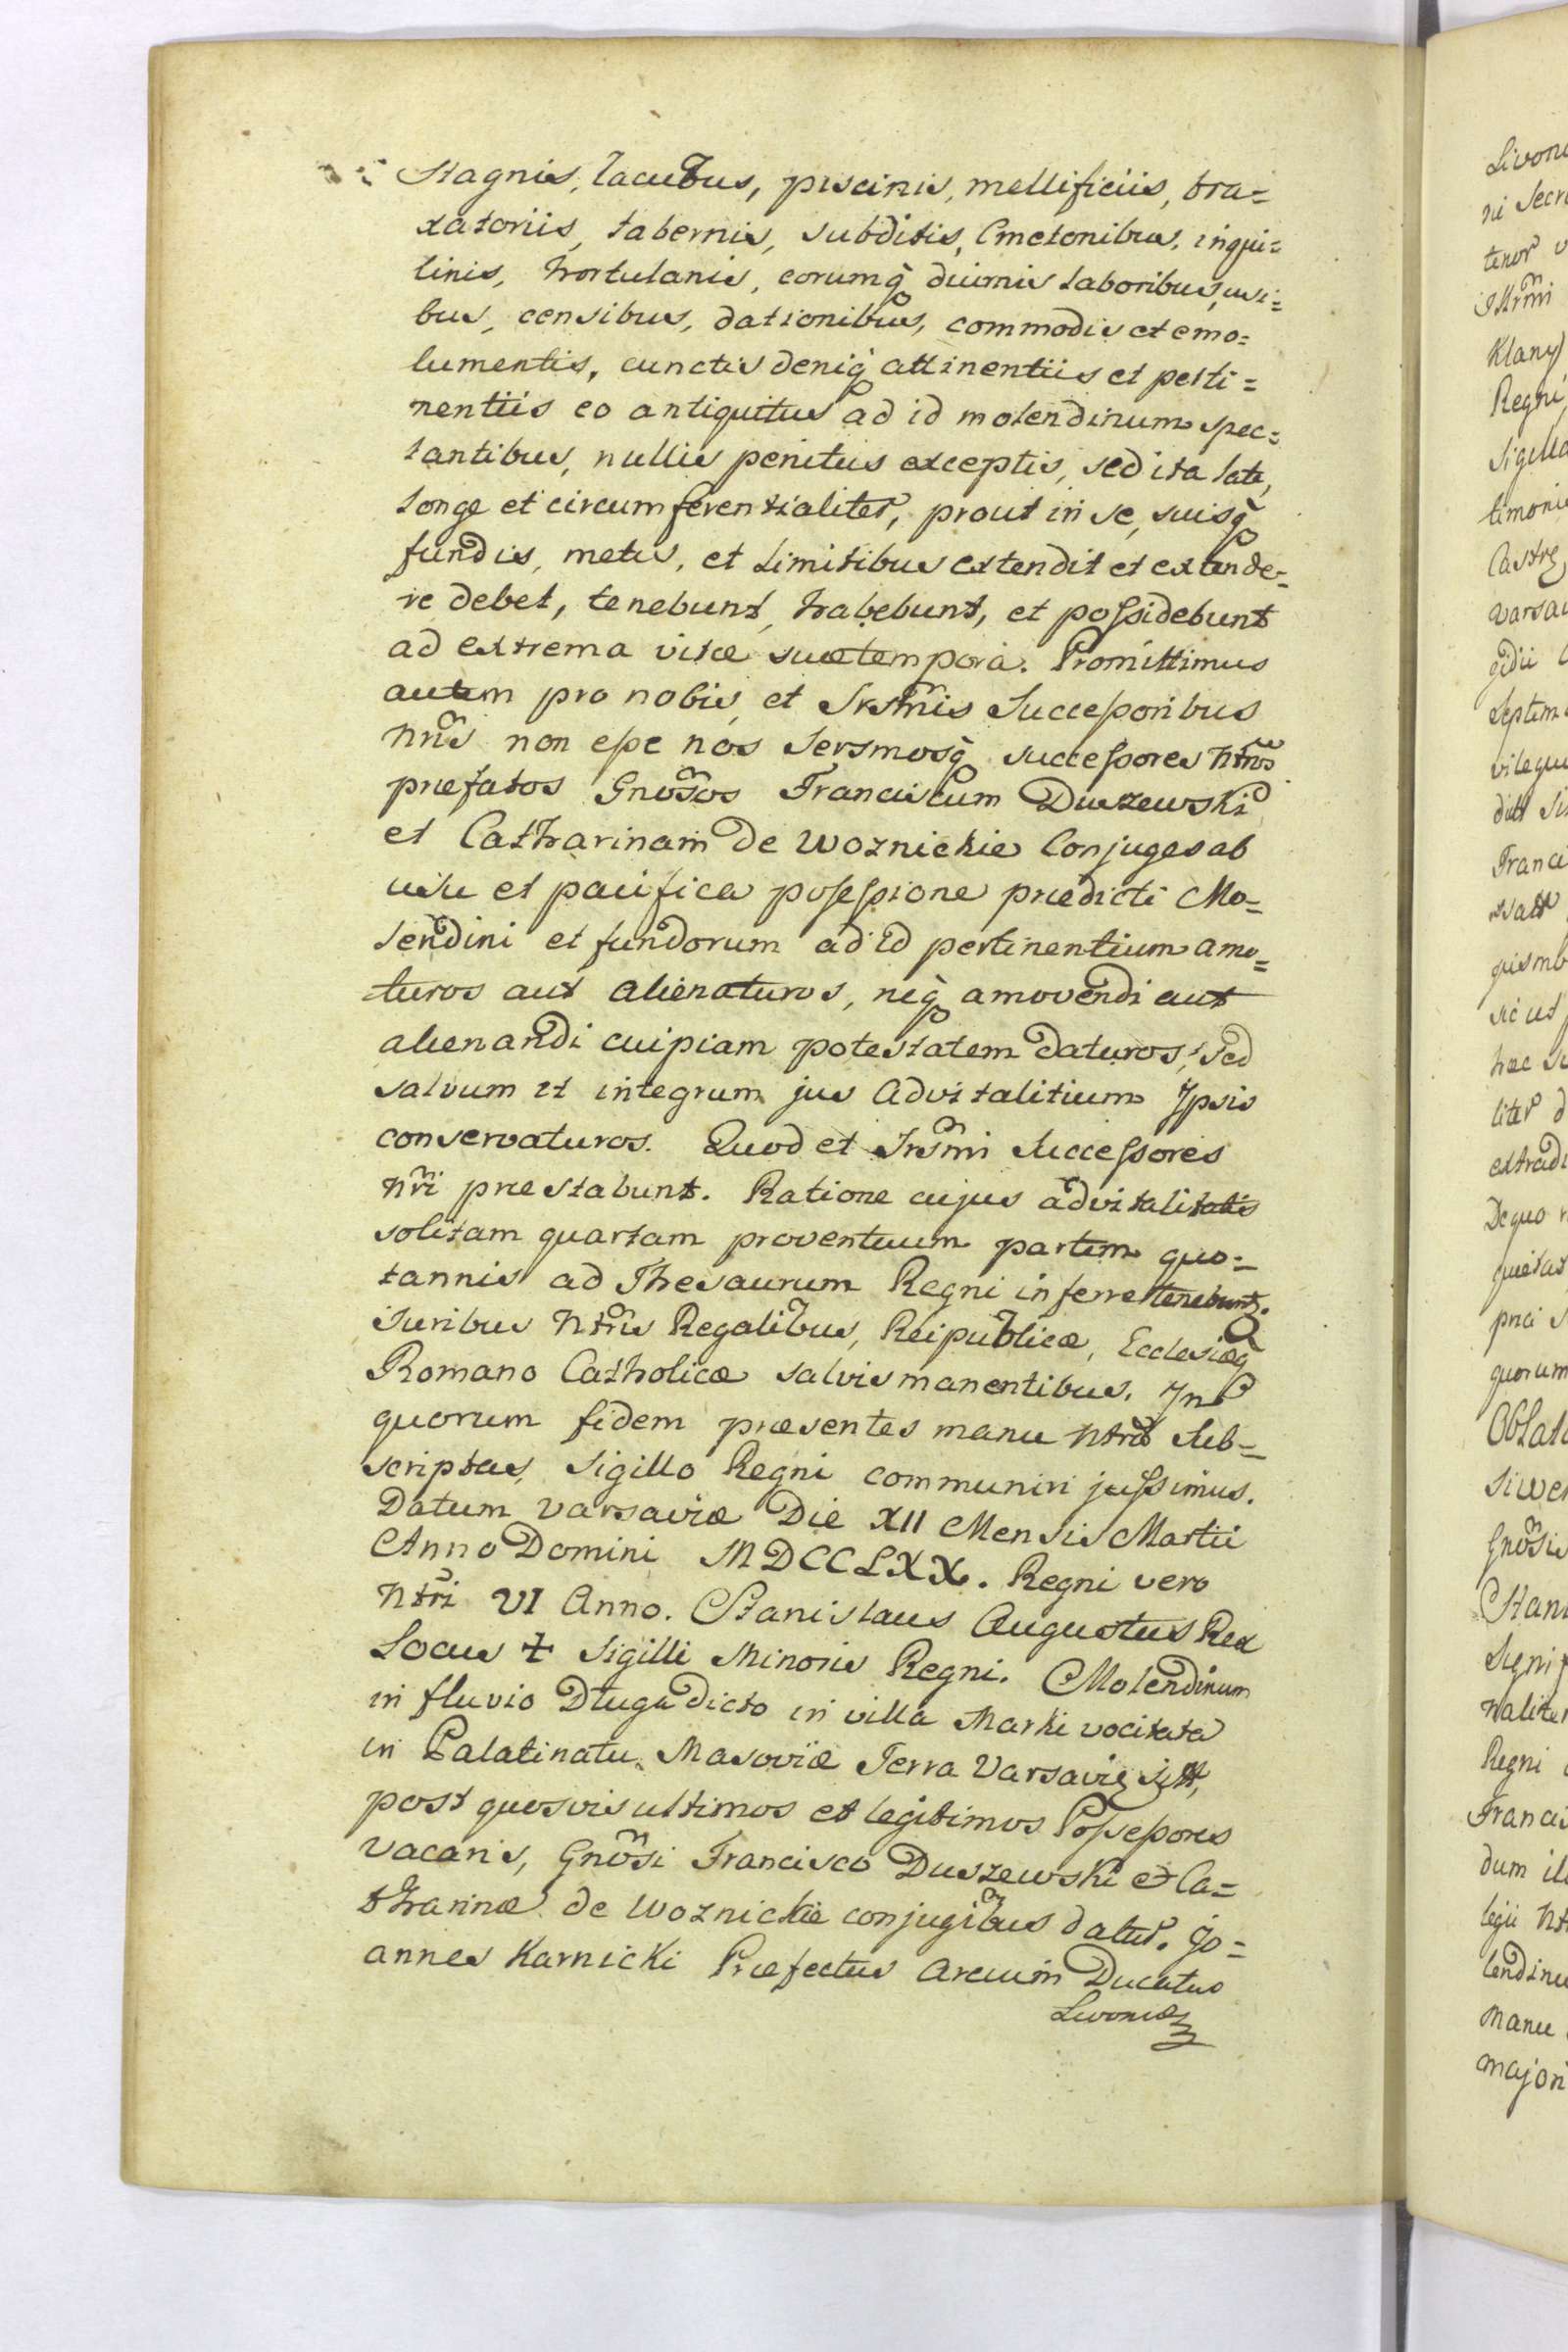 Stagnis, lacubus, piscinis, mellificiis, bra=
xatoriis, tabernis, subditis, Cmetonibus, inqui=
linis, hortulanis, eorumq̀ diurnis laboribus, usi=
bus, censibus, dationibus, commodis et emo=
lumentis, cunctis deniq̀ attinentiis et perti=
nentiis eo antiquitus ad id molendinum spec=
tantibus, nullis penitus exceptis, sed ita late,
longe et circumferentialiter, prout in se, suisq̀
fundis, metis, et Limitibus extendit et extende=
re debet, tenebunt, habebunt, et possidebunt
ad extrema vitæ suæ tempora. Promittimus
autem pro nobis, et Srsm̃is Successoribus
nr̃is non esse nos Sersmosq̀ successores ntr̃os
præfatos Gnõsos Franciscum Duszewski
et Catharinam de Woznickie Conjuges ab
usu et pacifica possessione prædicti Mo=
lendini et fundorum ad id pertinentium amo=
turos aut alienaturos, neq̀ amovendi aut
alienandi cuipiam potestatem daturos, sed
salvum et integrum jus Advitalitium Ipsis
conservaturos. Quod et Srsm̃i Successores
nr̃i præstabunt. Ratione cujus advitalitatis
solitam quartam proventuum partem quo=
tannis ad Thesaurum Regni inferre tenebunt.
Iuribus Ntr̃is Regalibus, Reipublicæ, Ecclesiæq̀
Romano Catholicæ salvis manentibus. In
quorum fidem præsentes manu Ntrã Sub=
scriptas, Sigillo Regni communiri jussimus.
Datum Varsaviæ Die XII Mensis Martii
Anno Domini MDCCLXX. Regni vero
Ntr̃i VI Anno. Stanislaus Augustus Rex
Locus ✝ Sigilli Minoris Regni. Molendinum
in fluvio Długa dicto in villa Marki vocitata
in Palatinatu Masoviæ Terra Varsavię sitt,
post quosvis ultimos et legitimos Possessores
vacans, Gnõsi Francisco Duszewski et Ca=
tharinæ de Woznickie conjugibus datur. Jo=
annes Karnicki Præfectus Arcium Ducatus
Livoniæ